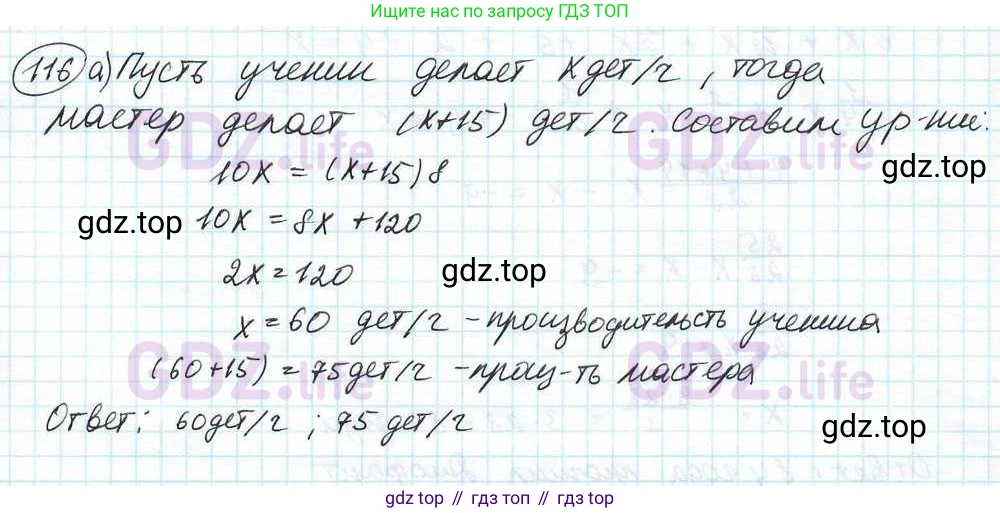 Ищите нас по запросу ГДЗ ТОП
116 а) Пусть ученик делает x дет/ч, тогда
мастер делает (x+15) дет/ч. Составим ур-ние:
10x = (x+15)8
10x = 8x + 120
2x = 120
x = 60 дет/ч - производительсть ученика
(60+15) = 75 дет/ч - произ-ть мастера
Ответ: 60 дет/ч ; 75 дет/ч
GDZ.life GDZ.life
gdz.top
gdz.top
gdz.top
GDZ.life GDZ.life
gdz.top
gdz.top // гдз топ // гдз.top